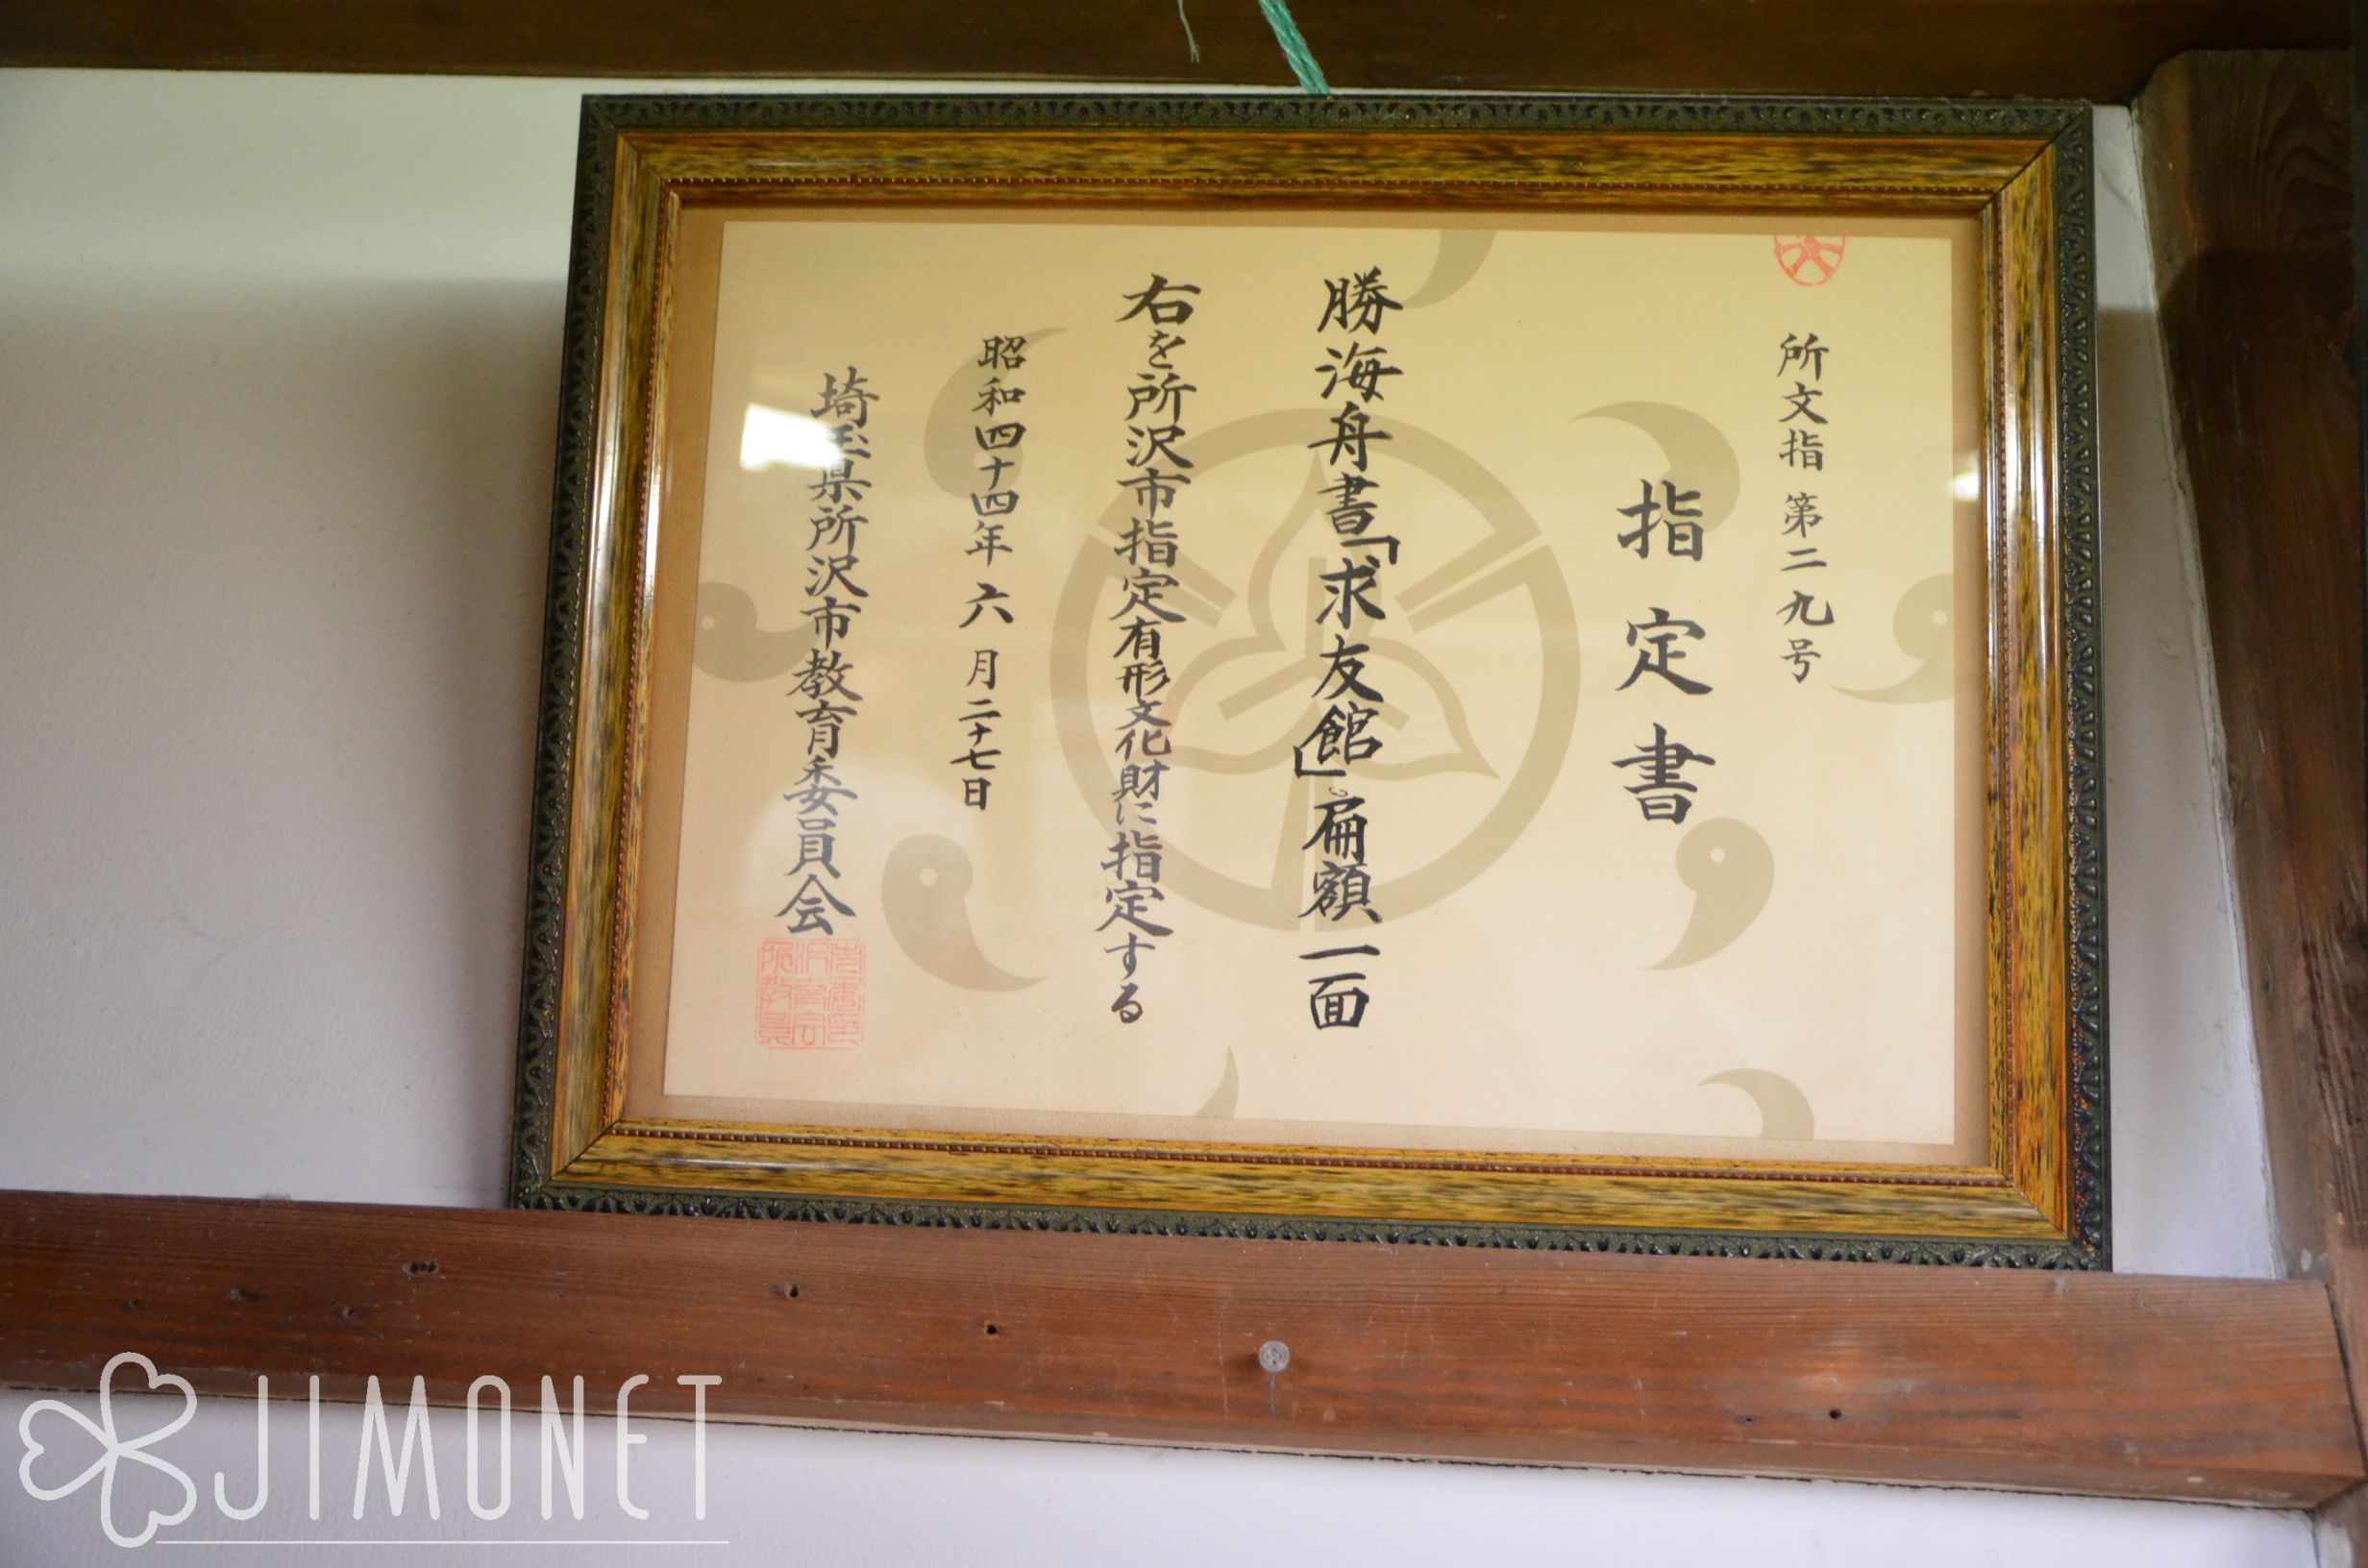 所文指第二九号
指定書
勝海舟書「求友館」扁額一面
右を所沢市指定有形文化財に指定する
昭和四十四年六月二十七日
埼玉県所沢市教育委員会
JIMONET